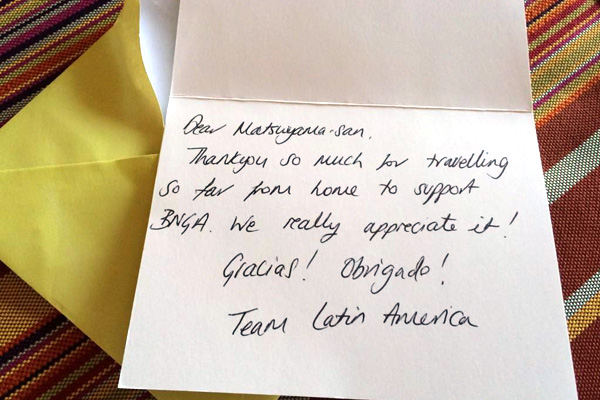 Dear Matsuyama-san,
Thankyou so much for travelling
so far from home to support
BNGA. We really appreciate it!
Gracias! Obrigado!
Team Latin America